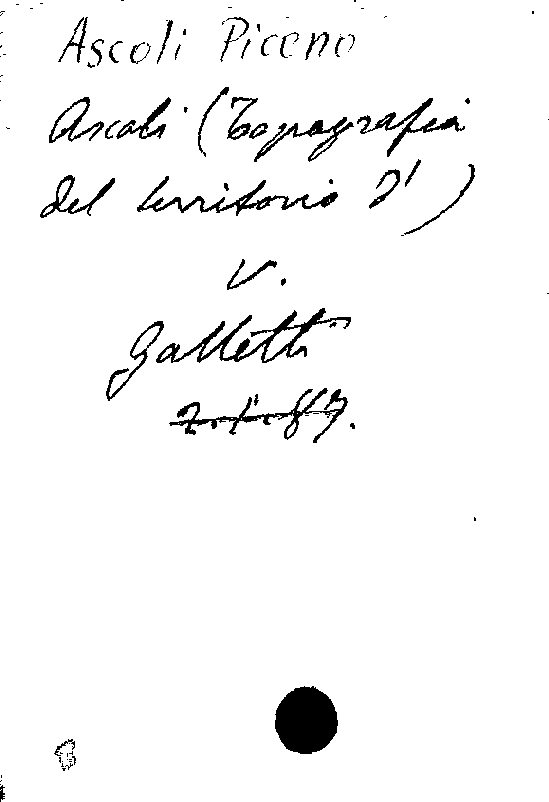 Ascoli Piceno
Ascoli (Topografia
del territorio d')
V.
Galletti